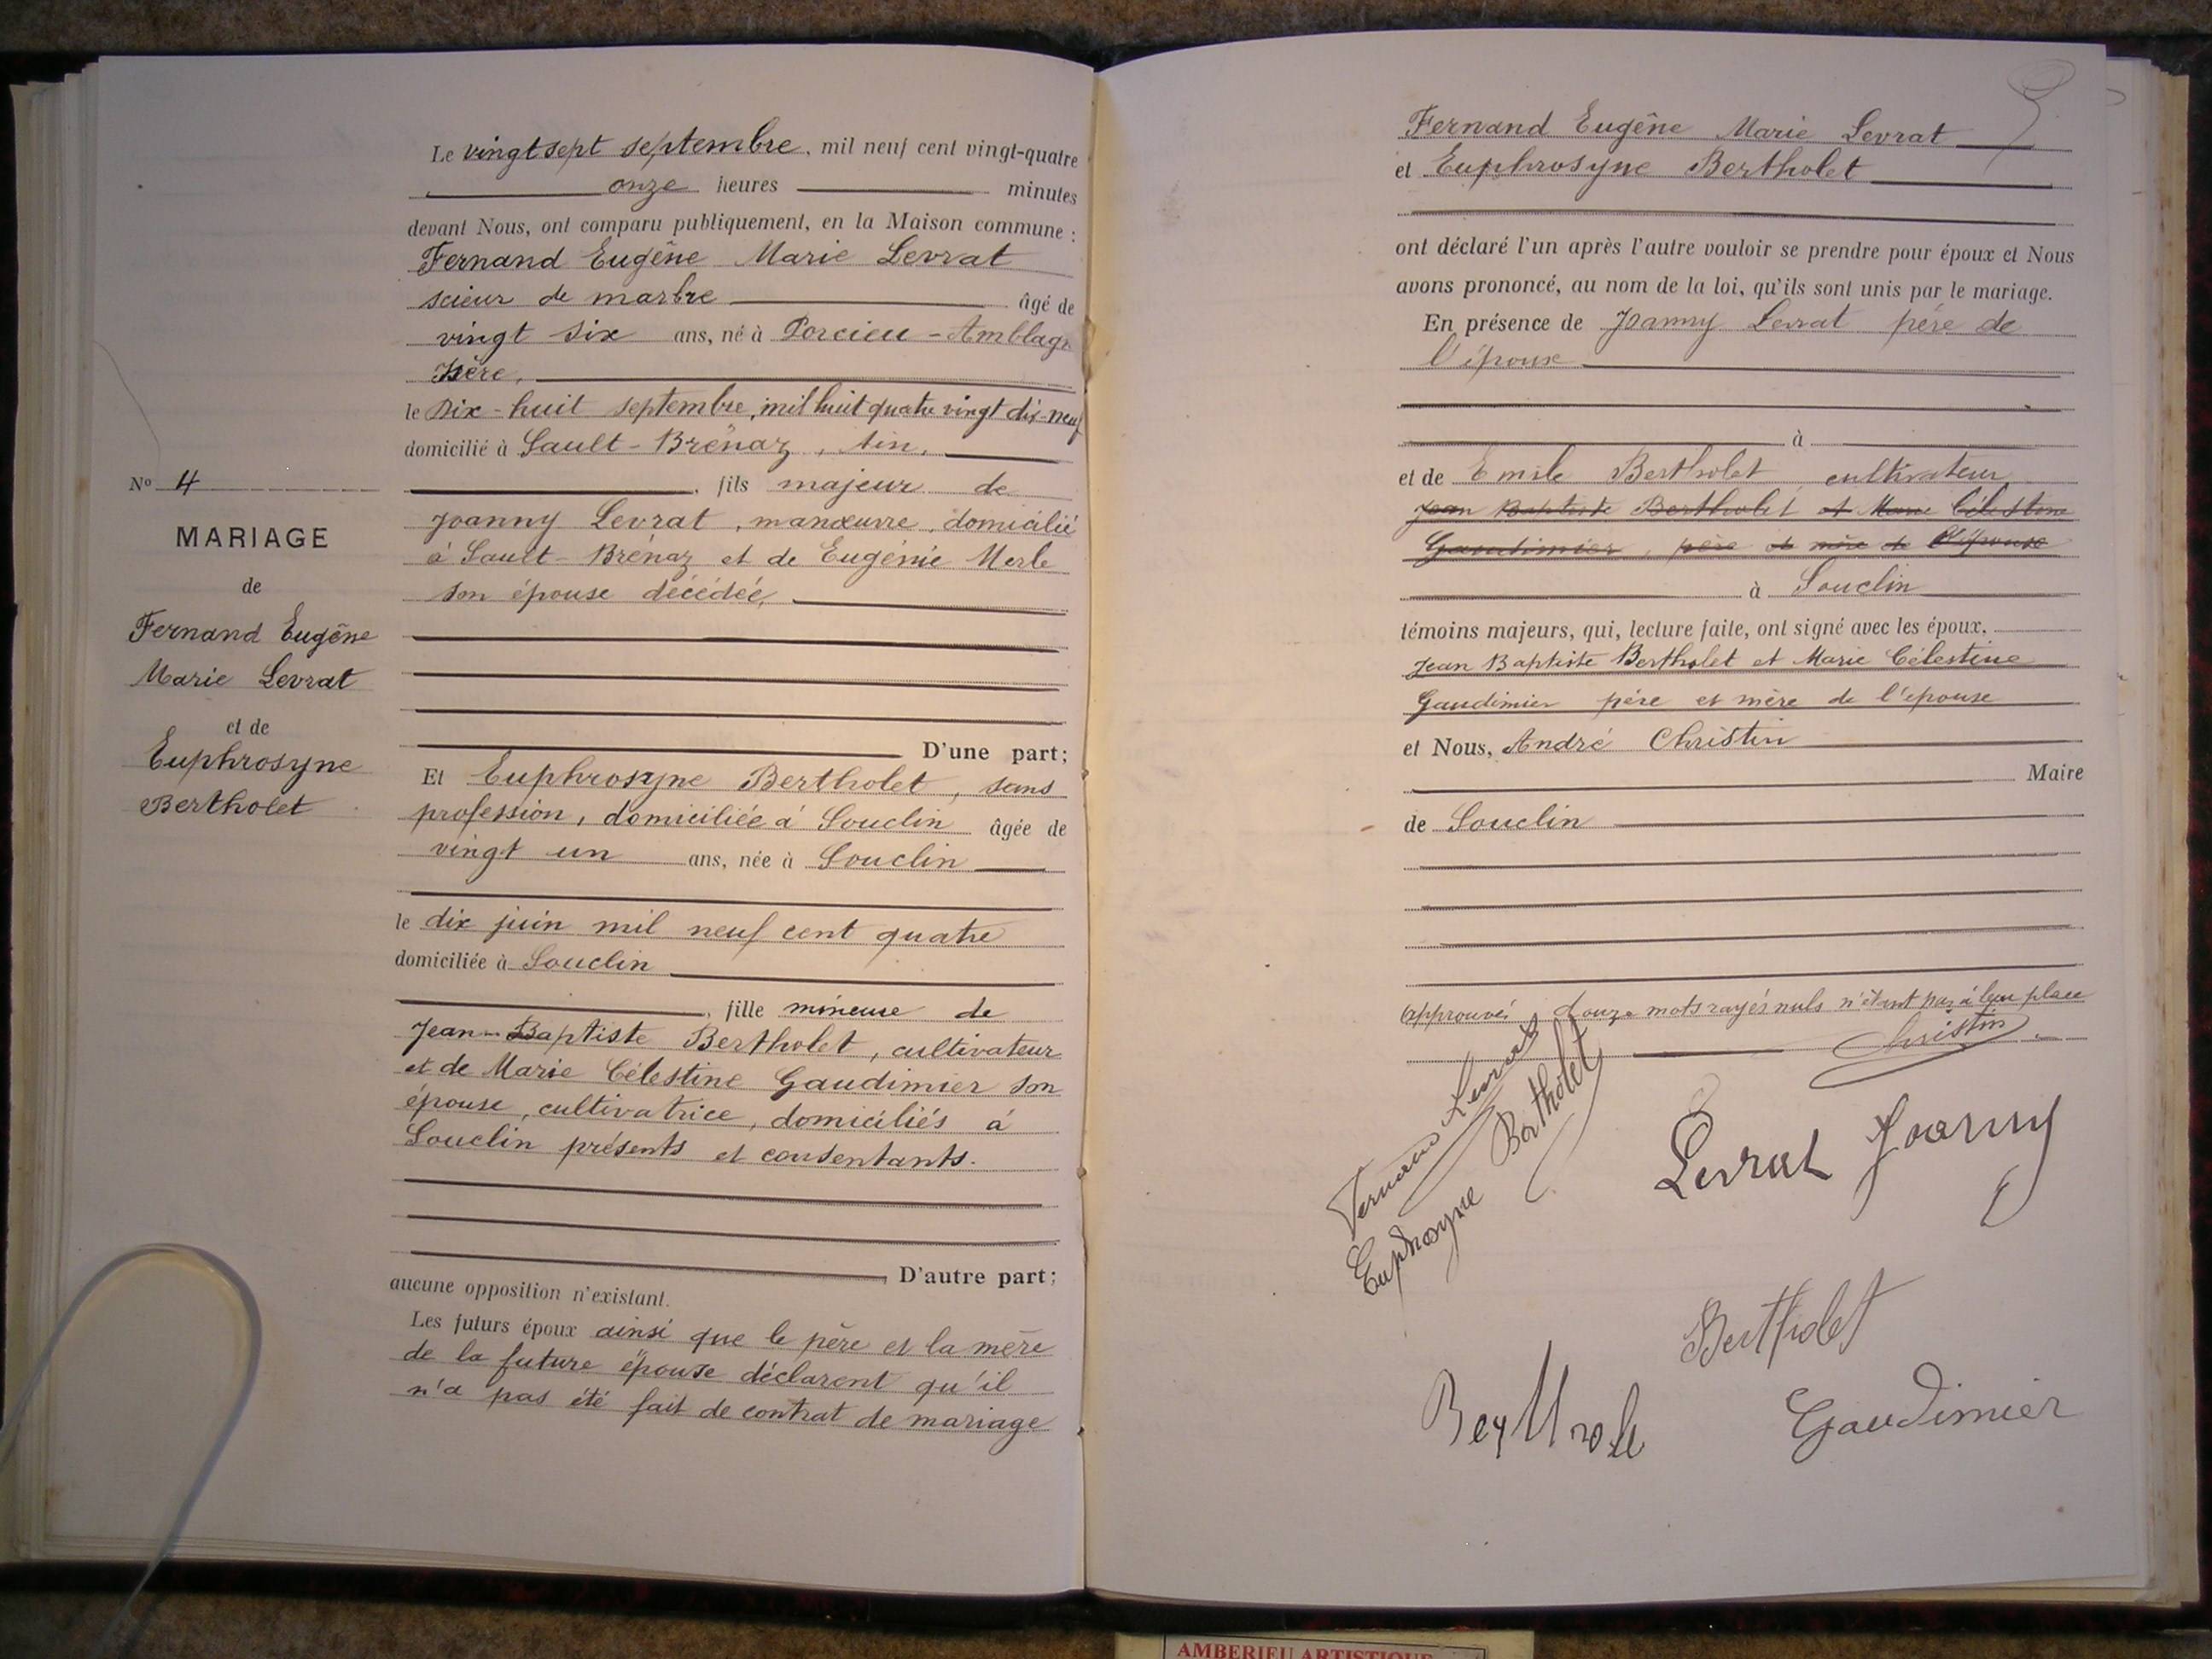 Le vingt sept septembre, mil neuf cent vingt-quatre
onze heures minutes
devant Nous, ont comparu publiquement, en la Maison commune :
Fernand Eugène Marie Levrat
scieur de marbre âgé de
vingt six ans, né à Porcieu - Amblagn
Isère,
le dix - huit septembre, mil huit quatre vingt dix-neuf
domicilié à Sault - Brénaz, Ain,
, fils majeur de
Joanny Levrat, manœuvre, domicilié
à Sault - Brénaz et de Eugénie Merle
son épouse décédée,
D'une part;
Et Euphrosyne Bertholet, sans
profession, domiciliée à Souclin âgée de
vingt un ans, née à Souclin
le dix juin mil neuf cent quatre
domiciliée à Souclin
, fille mineure de
Jean-Baptiste Bertholet, cultivateur
et de Marie Célestine Gaudimier son
épouse, cultivatrice, domiciliés à
Souclin présents et consentants.
D'autre part;
aucune opposition n'existant.
Les futurs époux ainsi que le père et la mère
de la future épouse déclarent qu'il
n'a pas été fait de contrat de mariage
No 4
MARIAGE
de
Fernand Eugène
Marie Levrat
et de
Euphrosyne
Bertholet
Fernand Eugène Marie Levrat
et Euphrosyne Bertholet
ont déclaré l'un après l'autre vouloir se prendre pour époux et Nous
avons prononcé, au nom de la loi, qu'ils sont unis par le mariage.
En présence de Joanny Levrat père de
l'époux
à
et de Emile Bertholet cultivateur
Jean Baptiste Bertholet et Marie Célestine
Gaudimier, père et mère de l'épouse
à Souclin
témoins majeurs, qui, lecture faite, ont signé avec les époux.
Jean Baptiste Bertholet et Marie Célestine
Gaudimier père et mère de l'épouse
et Nous, André Christin
Maire
de Souclin
Approuvés douze mots rayés nuls n'étant pas à leur place
Christin
Fernand Levrat
Euphrosyne Bertholet
Levrat Joanny
Bertholet
Gaudimier
AMBERIEU ARTISTIQUE